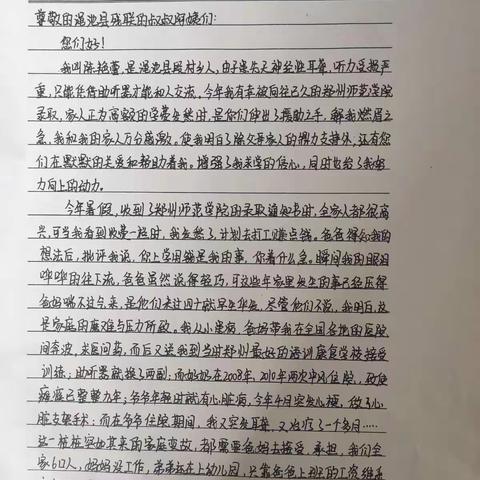 尊敬的渑池县残联的叔叔阿姨们:
您们好!
我叫陈艳蕾,是渑池县段村乡人,由于患先天神经性耳聋,听力受损严
重,只能凭借助听器才能和人交流。今年我有幸被向往已久的郑州师范学院
录取,家人正为高额的学费发愁时,是你们伸出了援助之手,解我燃眉之
急,我和我的家人万分感激。使我明白了除父母家人的鼎力支持外,还有您
们在默默的关爱和帮助着我。增强了我求学的信心,同时也给了我努
力向上的动力。
今年暑假,收到了郑州师范学院的录取通知书时,全家人都很高
兴,可当我看到收费一栏时,我发愁了,计划去打工赚点钱。爸爸得知我的
想法后,批评我说,你上学用钱是我的事,你着什么急。瞬间我的眼泪
哗哗的往下流,爸爸虽然说得轻巧,可这些年家里发生的事已经压得
爸妈喘不过气来,是他们未过四十就早生华发,尽管他们不说,我明白,这
是家庭的磨难与压力所致。我从小患病,爸妈带我在全国各地的医院
间奔波,求医问药,而后又送我到当时郑州最好的语训康复学校接受
训练;助听器就换了两副;而妈妈在2008年,2010年两次中风住院,致使
瘫痪已整整九年;爸爸年轻时就有心脏病,今年4月突发心梗,做了心
脏支架手术;而在爸爸住院期间,我又突发耳聋,又治疗了一个多月……
这一桩桩突如其来的家庭变故,都需要爸妈去接受、承担,我们全
家6口人,妈妈没工作,弟弟还在上幼儿园,只靠爸爸上班的工资维系